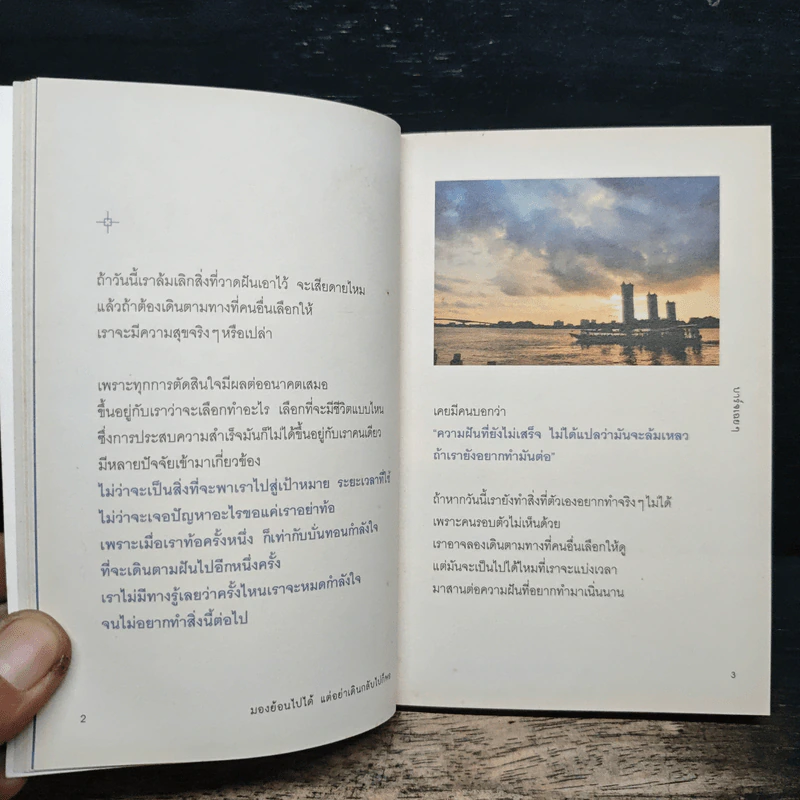 ถ้าวันนี้เราล้มเลิกสิ่งที่วาดฝันเอาไว้ จะเสียดายไหม
แล้วถ้าต้องเดินตามทางที่คนอื่นเลือกให้
เราจะมีความสุขจริงๆ หรือเปล่า
เพราะทุกการตัดสินใจมีผลต่ออนาคตเสมอ
ขึ้นอยู่กับเราว่าจะเลือกทำอะไร เลือกที่จะมีชีวิตแบบไหน
ซึ่งการประสบความสำเร็จมันก็ไม่ได้ขึ้นอยู่กับเราคนเดียว
มีหลายปัจจัยเข้ามาเกี่ยวข้อง
ไม่ว่าจะเป็นสิ่งที่จะพาเราไปสู่เป้าหมาย ระยะเวลาที่ใช้
ไม่ว่าจะเจอปัญหาอะไรขอแค่เราอย่าท้อ
เพราะเมื่อเราท้อครั้งหนึ่ง ก็เท่ากับบั่นทอนกำลังใจ
ที่จะเดินตามฝันไปอีกหนึ่งครั้ง
เราไม่มีทางรู้เลยว่าครั้งไหนเราจะหมดกำลังใจ
จนไม่อยากทำสิ่งนี้ต่อไป
มองย้อนไปได้ แต่อย่าเดินกลับไปก็พอ
2
เคยมีคนบอกว่า
“ความฝันที่ยังไม่เสร็จ ไม่ได้แปลว่ามันจะล้มเหลว
ถ้าเรายังอยากทำมันต่อ”
ถ้าหากวันนี้เรายังทำสิ่งที่ตัวเองอยากทำจริงๆ ไม่ได้
เพราะคนรอบตัวไม่เห็นด้วย
เราอาจลองเดินตามทางที่คนอื่นเลือกให้ดู
แต่มันจะเป็นไปได้ไหมที่เราจะแบ่งเวลา
มาสานต่อความฝันที่อยากทำมาเนิ่นนาน
3